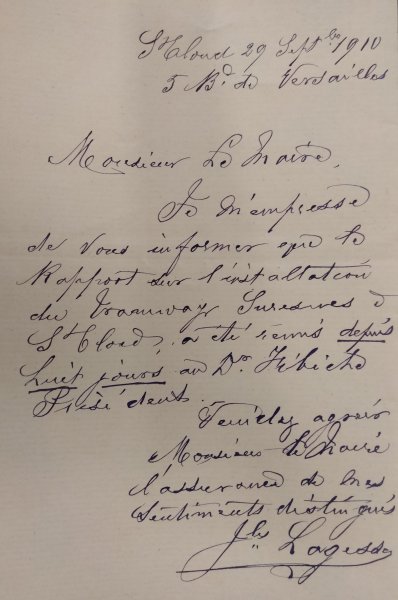 St Cloud 29 Septbre 1910
5 Bd. de Versailles
Monsieur Le Maire,
Je m'empresse
de vous informer que le
Rapport sur l'installation
du Tramway Suresnes à
St Cloud, a été remis depuis
huit jours au Dr.
Président.
Veuillez agréer
Monsieur le Maire
l'assurance de mes
sentiments distingués
Jles